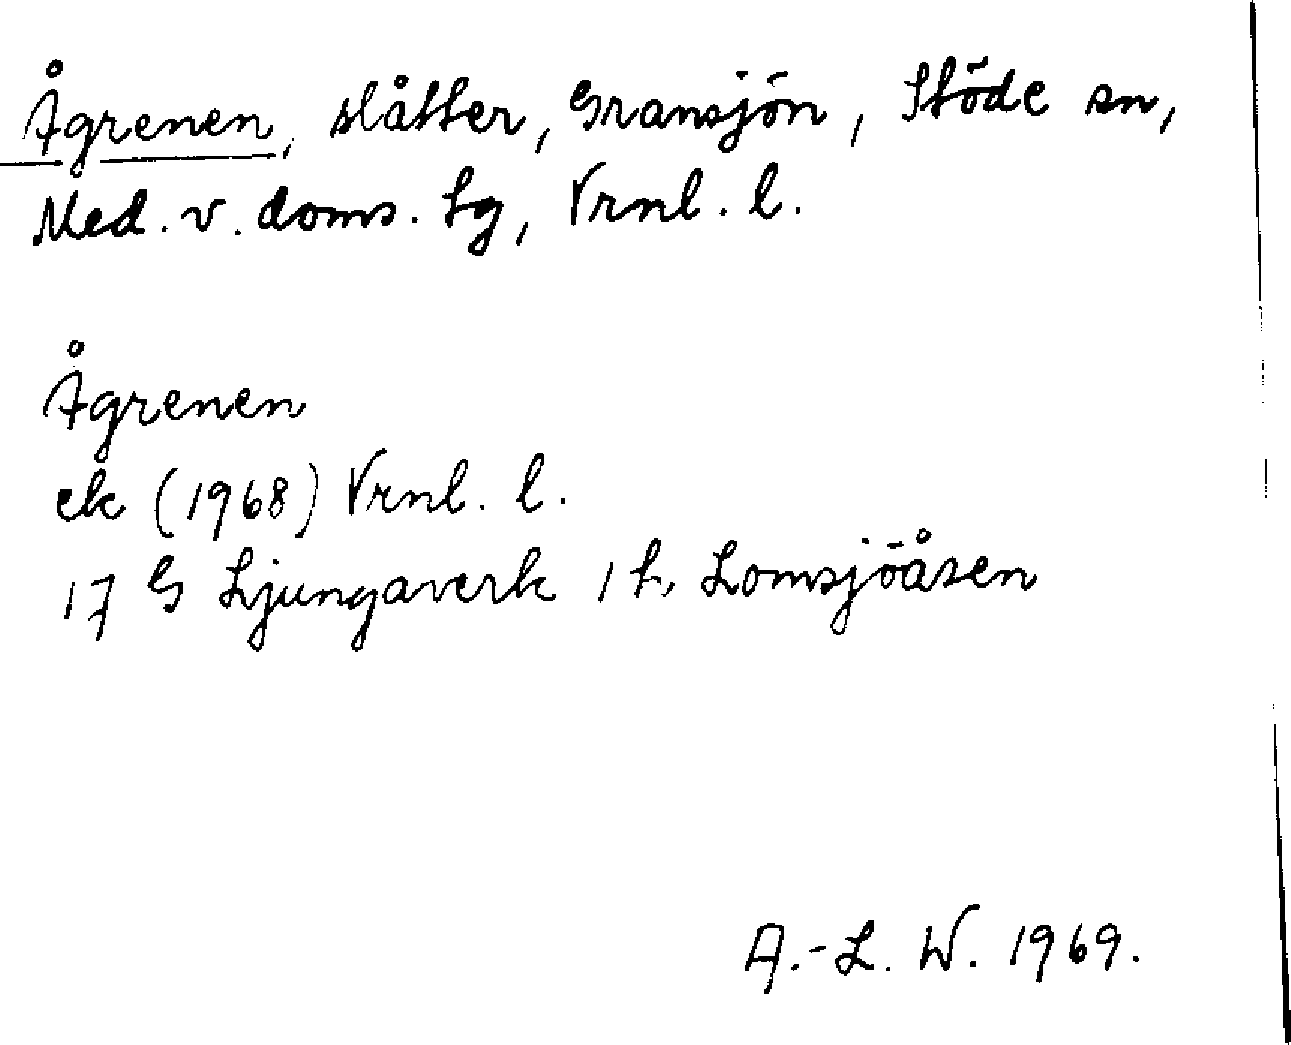 Ågrenen, slåtter, Gransjön, Stöde sn,
Med. v. doms. tg, Vrnl. l.
Ågrenen
ek (1968) Vrnl. l.
17 G Ljungaverk 1 h Lomsjöåsen
A.-L. W. 1969.